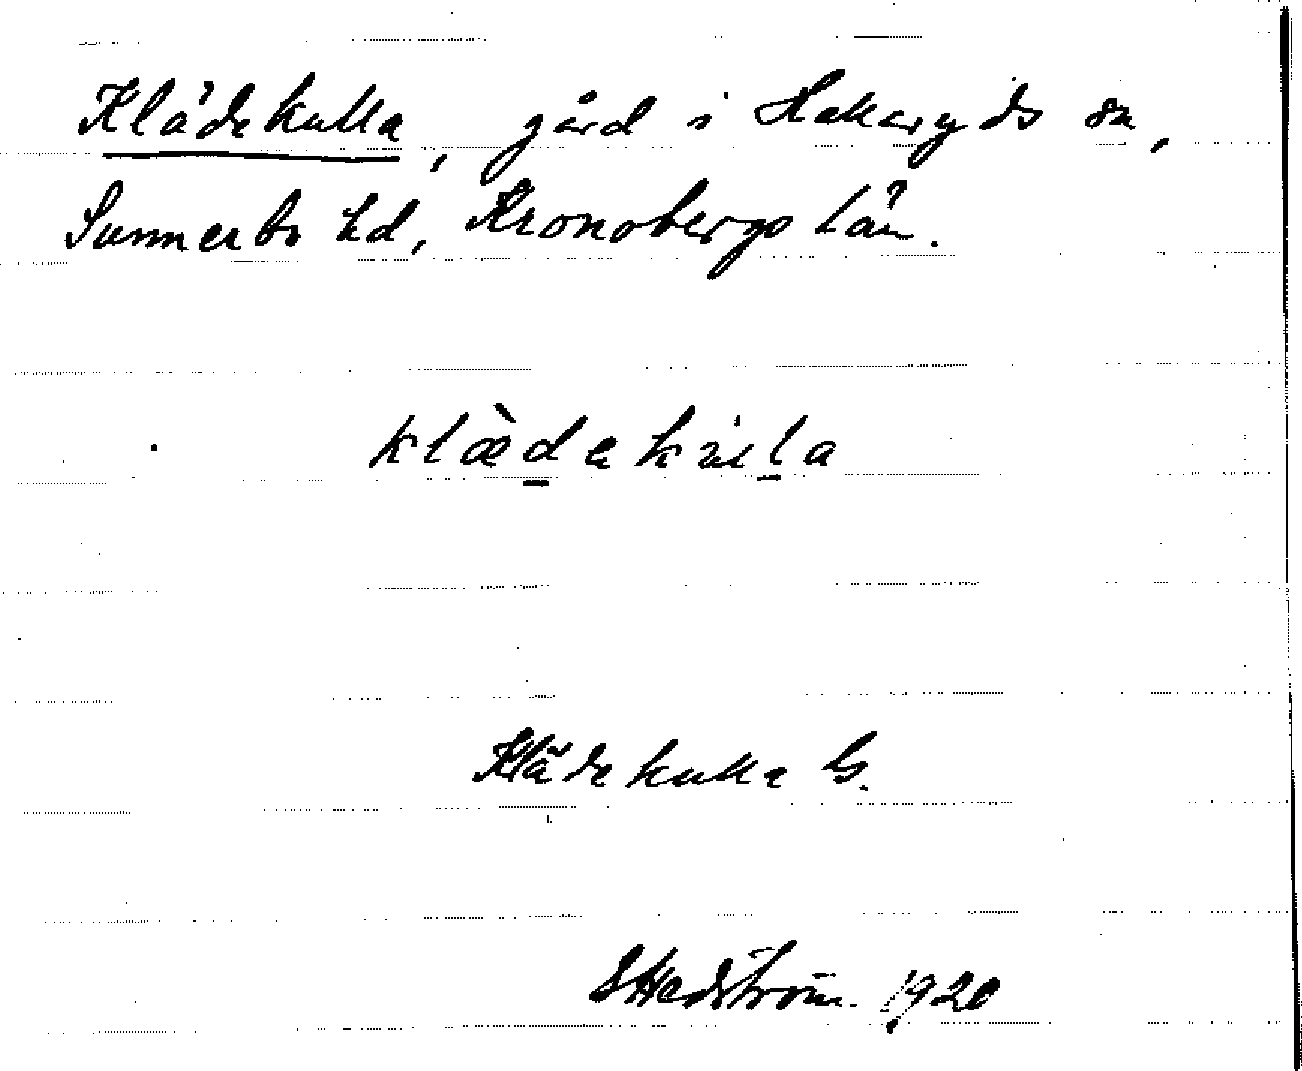 Klädekulla, gård i Hakaryds sn,
Sunnerbo hd, Kronobergs län.
klædakula
Klädekulla G.
G Hedström. 1920